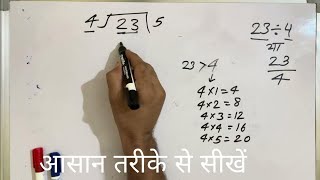 4 ⟌ 23 ( 5
23÷4
या
23/4
23>4
4×1=4
4×2=8
4×3=12
4×4=16
4×5=20
आसान तरीके से सीखें